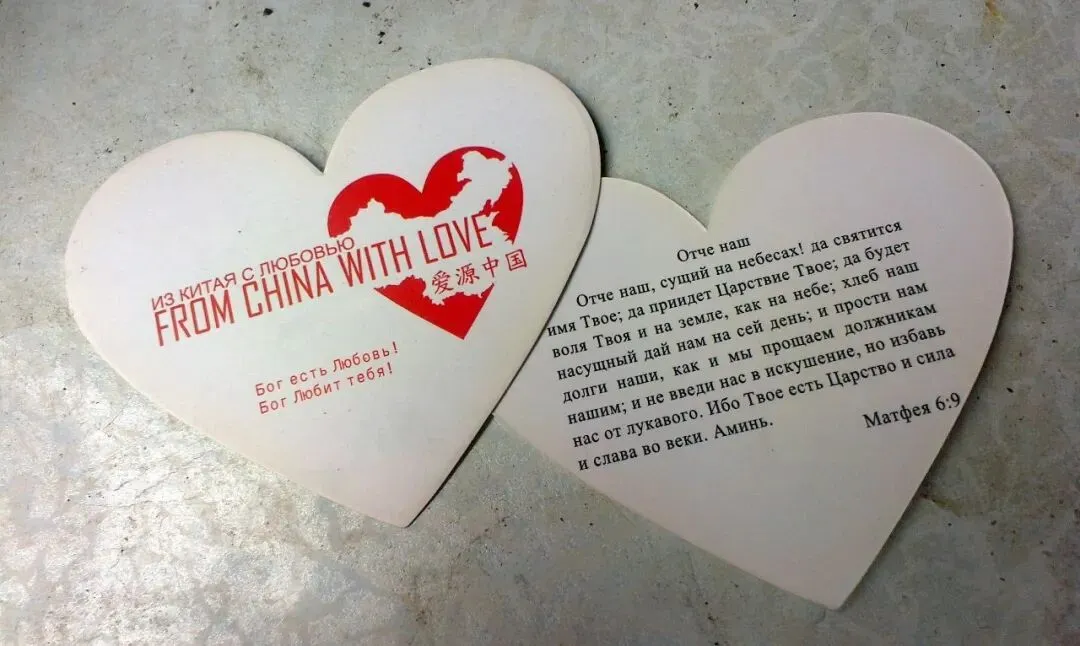 ИЗ КИТАЯ С ЛЮБОВЬЮ
FROM CHINA WITH LOVE
爱源中国
Бог есть Любовь!
Бог Любит тебя!
Отче наш
Отче наш, сущий на небесах! да святится
имя Твое; да приидет Царствие Твое; да будет
воля Твоя и на земле, как на небе; хлеб наш
насущный дай нам на сей день; и прости нам
долги наши, как и мы прощаем должникам
нашим; и не введи нас в искушение, но избавь
нас от лукавого. Ибо Твое есть Царство и сила
и слава во веки. Аминь.
Матфея 6:9